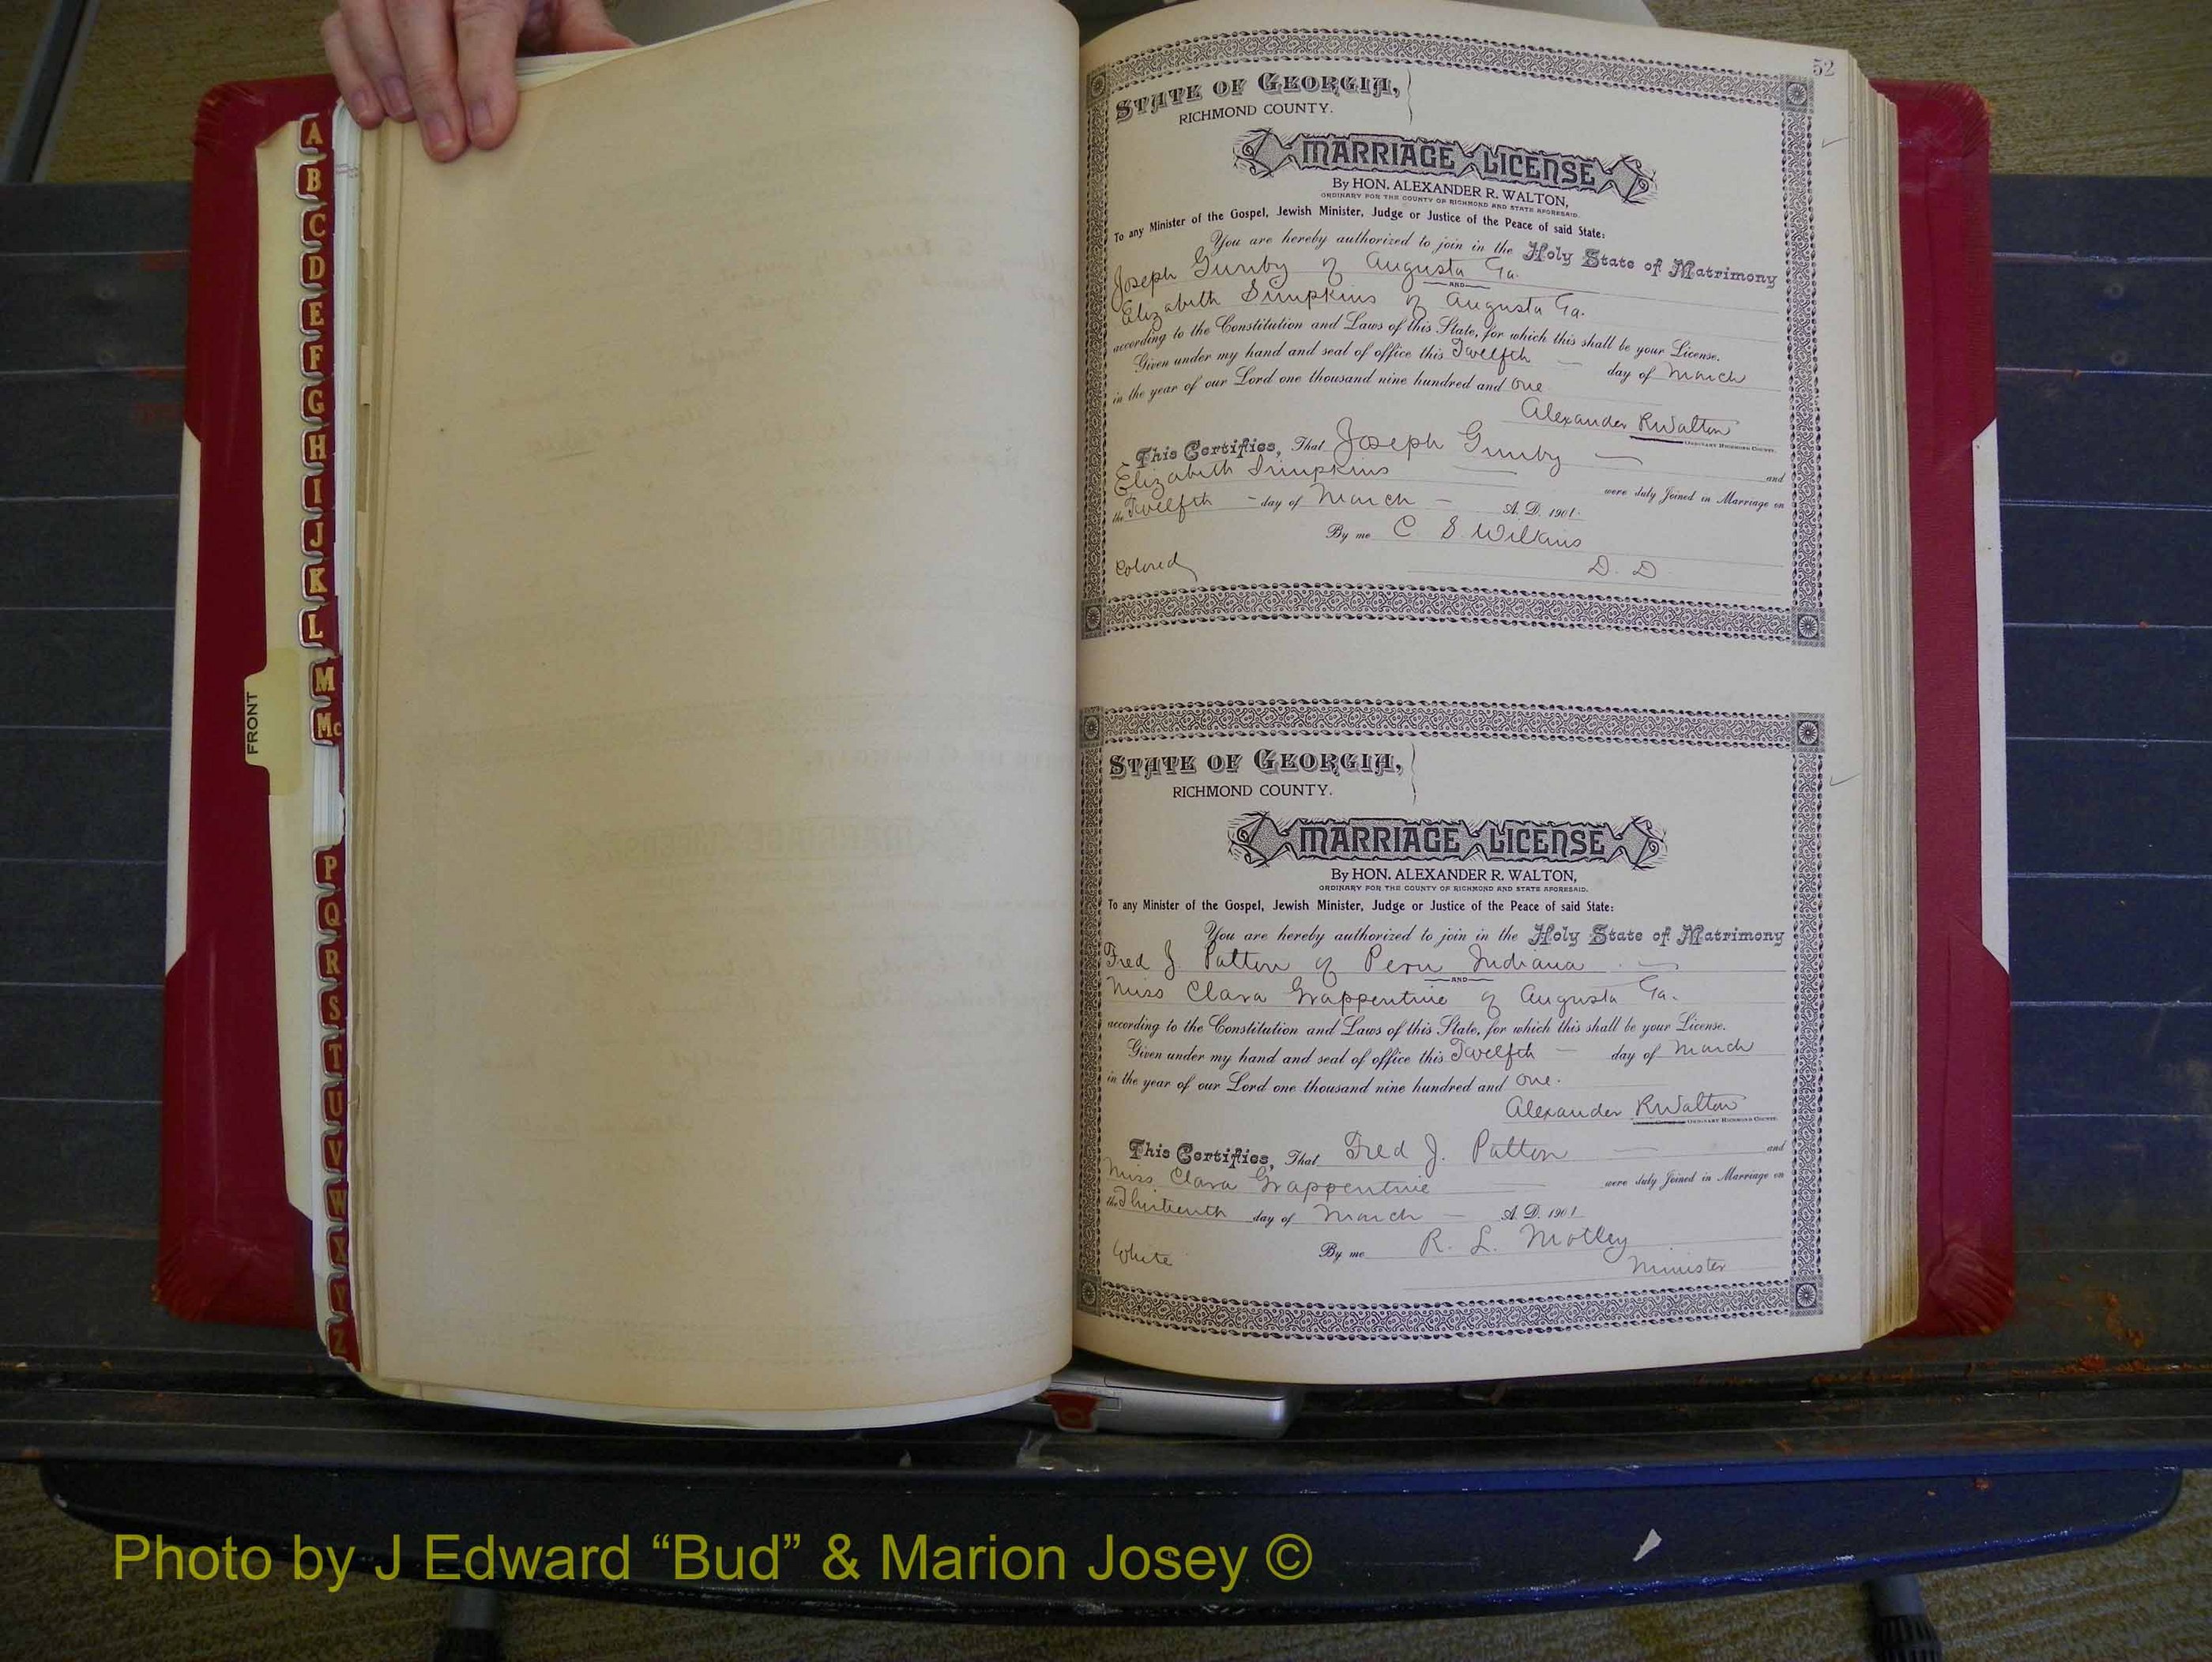 A
B
C
D
E
F
G
H
I
J
K
L
M
Mc
P
Q
R
S
T
U
V
W
X
Y
Z
FRONT
52
STATE OF GEORGIA,
RICHMOND COUNTY.
MARRIAGE LICENSE
By HON. ALEXANDER R. WALTON,
ORDINARY FOR THE COUNTY OF RICHMOND AND STATE AFORESAID.
To any Minister of the Gospel, Jewish Minister, Judge or Justice of the Peace of said State:
You are hereby authorized to join in the Holy State of Matrimony
Joseph Gunby of Augusta Ga.
AND
Elizabeth Simpkins of Augusta Ga.
according to the Constitution and Laws of this State, for which this shall be your License.
Given under my hand and seal of office this Twelfth day of March
in the year of our Lord one thousand nine hundred and One
Alexander R Walton
ORDINARY RICHMOND COUNTY.
This Certifies, That Joseph Gunby and
Elizabeth Simpkins were duly Joined in Marriage on
the Twelfth day of March A. D. 1901.
By me C S. Wilkins
Colored D. D.
STATE OF GEORGIA,
RICHMOND COUNTY.
MARRIAGE LICENSE
By HON. ALEXANDER R. WALTON,
ORDINARY FOR THE COUNTY OF RICHMOND AND STATE AFORESAID.
To any Minister of the Gospel, Jewish Minister, Judge or Justice of the Peace of said State:
You are hereby authorized to join in the Holy State of Matrimony
Fred J. Patton of Peru Indiana
AND
Miss Clara Grappentine of Augusta Ga.
according to the Constitution and Laws of this State, for which this shall be your License.
Given under my hand and seal of office this Twelfth day of March
in the year of our Lord one thousand nine hundred and One.
Alexander R Walton
ORDINARY RICHMOND COUNTY.
This Certifies, That Fred J. Patton and
Miss Clara Grappentine were duly Joined in Marriage on
the Thirteenth day of March A. D. 1901
White By me R. L. Motley
Minister
Photo by J Edward “Bud” & Marion Josey ©